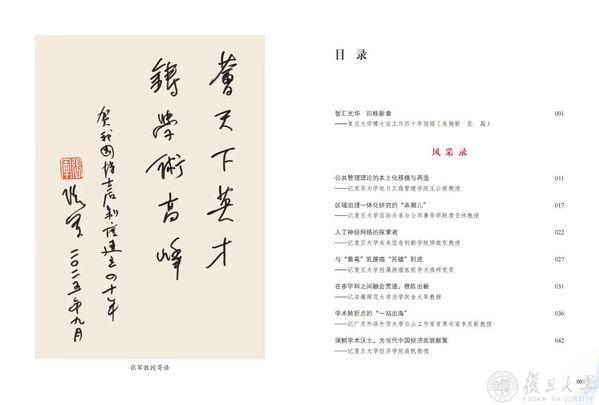 薈天下英才
鑄學術高峰
贺我国博士后制度建立四十年
张军
二〇二五年九月
张军教授寄语
目 录
智汇光华 四秩新章 001
——复旦大学博士后工作四十年回顾（朱嫣敏 张 磊）
风采录
公共管理理论的本土化移植与再造 011
——记东华大学旭日工商管理学院王云骏教授
区域治理一体化研究的“弄潮儿” 017
——记复旦大学国际关系与公共事务学院唐亚林教授
人工神经网络的探索者 022
——记复旦大学未来信息创新学院顾晓东教授
与“最毒”乳腺癌“死磕”到底 027
——记复旦大学附属肿瘤医院李大强研究员
在多学科之间融会贯通，推陈出新 031
——记安徽师范大学法学院金大军教授
学术转折点的“一站出海” 036
——记广东外语外贸大学云山工作室首席专家李庆新教授
深耕学术沃土，为当代中国经济发展献策 042
——记复旦大学经济学院高帆教授
001
復旦大學
FUDAN UNIVERSITY